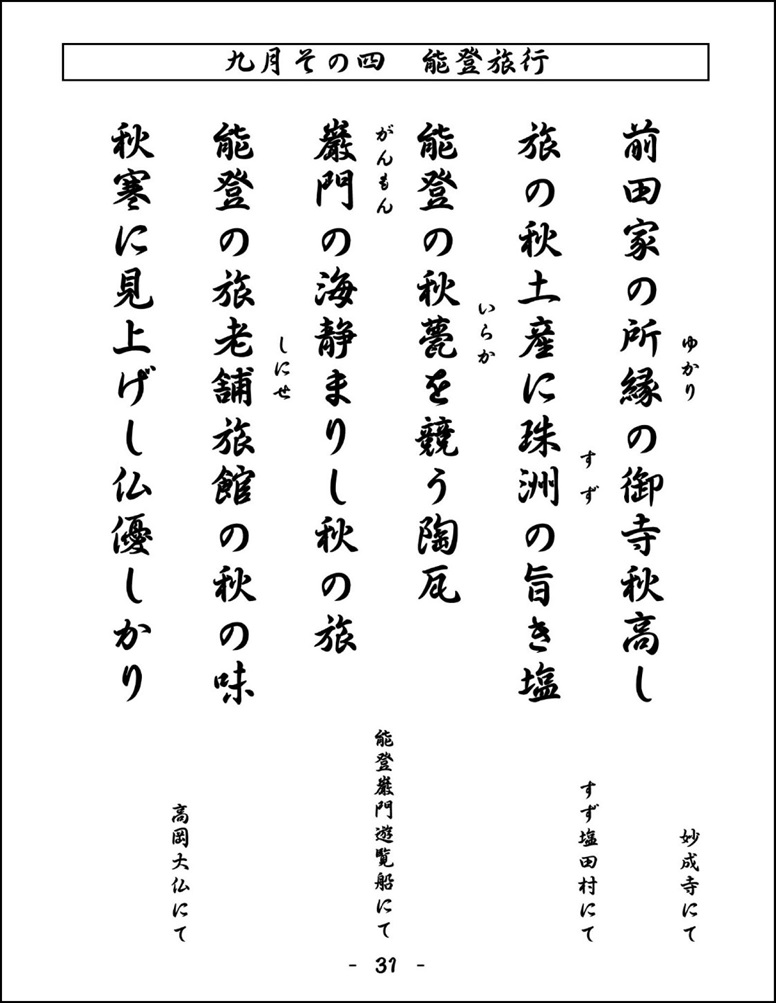 九月その四　能登旅行
前田家の所縁の御寺秋高し
ゆかり
妙成寺にて
旅の秋土産に珠洲の旨き塩
すず
すず塩田村にて
能登の秋甍を競う陶瓦
いらか
巌門の海静まりし秋の旅
がんもん
能登巌門遊覧船にて
能登の旅老舗旅館の秋の味
しにせ
秋寒に見上げし仏優しかり
高岡大仏にて
- 31 -